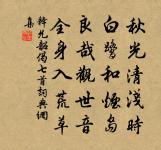 秋光清淺時
白鷺和煙島
良哉觀世音
全身入荒草
釋允韶偈七首詞典網
集